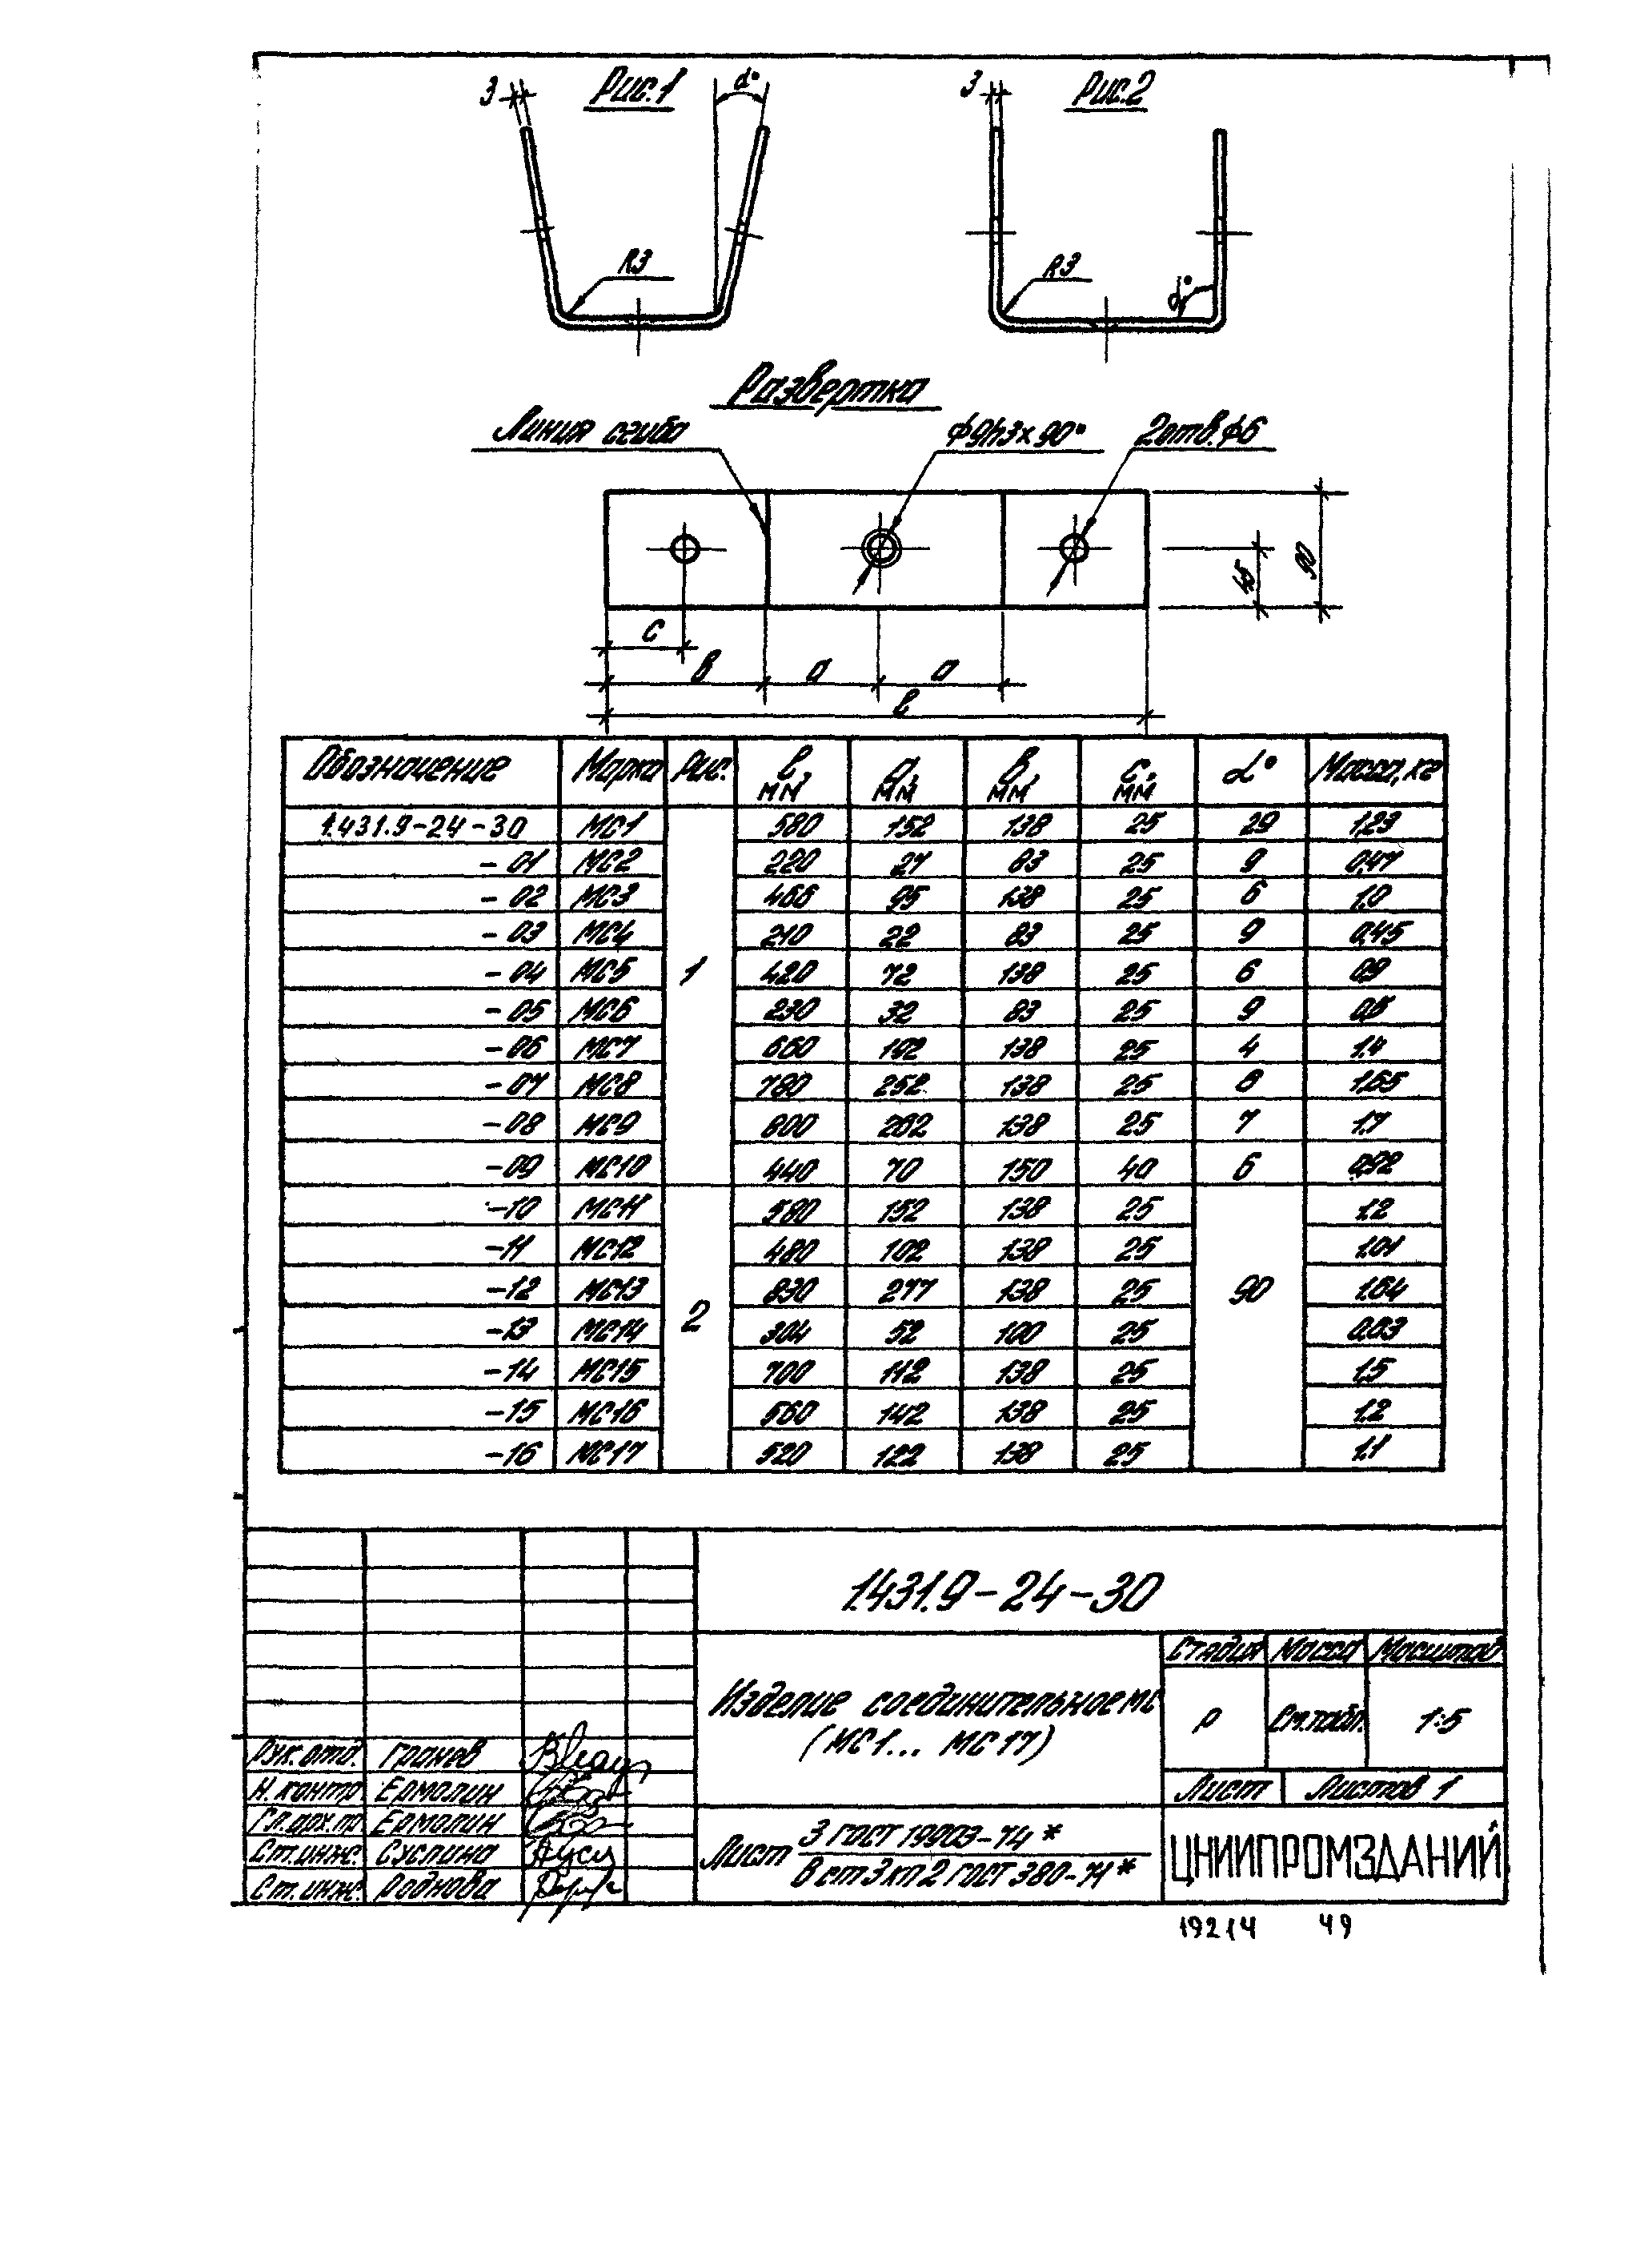 3 Рис.1 α°
3 Рис.2
R3
R3 α°
Развертка
Линия сгиба ϕ9h3×90° 2отв.ϕ6
45 90
с
в а а
ℓ
Обозначение Марка Рис. ℓ, мм а, мм в, мм с, мм α° Масса, кг
1.431.9-24-30 МС1 580 152 138 25 29 1,23
-01 МС2 220 27 83 25 9 0,47
-02 МС3 466 95 138 25 6 1,0
-03 МС4 210 22 83 25 9 0,45
-04 МС5 1 420 72 138 25 6 0,9
-05 МС6 230 32 83 25 9 0,5
-06 МС7 660 192 138 25 4 1,4
-07 МС8 780 252 138 25 8 1,65
-08 МС9 800 262 138 25 7 1,7
-09 МС10 440 70 150 40 6 0,92
-10 МС11 580 152 138 25 1,2
-11 МС12 480 102 138 25 1,01
-12 МС13 830 277 138 25 90 1,64
-13 МС14 2 304 52 100 25 0,63
-14 МС15 700 112 138 25 1,5
-15 МС16 560 142 138 25 1,2
-16 МС17 520 122 138 25 1,1
1.431.9-24-30
Изделие соединительное мс
(МС1... МС17)
Стадия Масса Масштаб
Р См.табл. 1:5
Лист Листов 1
Рук.отд. Гранев
Н.контр Ермолин
Гл.арх.пр Ермолин
Ст.инж. Суслина
Ст.инж. Роднова
Лист 3 ГОСТ 19903-74*
В ст3кп2 ГОСТ 380-71*
ЦНИИПРОМЗДАНИЙ
19214 49